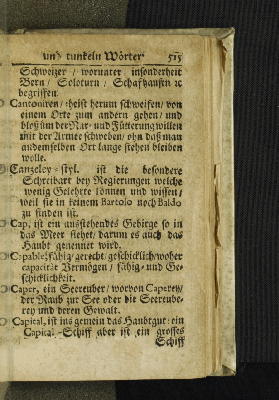 und tunkeln Wörter 515
Schweitzer / worunter insonderheit
Bern / Soloturn / Schafhausen ꝛc
begriffen.
Cantoniren / heist herum schweifen / von
einem Orte zum andern gehen / und
bloß um der Nar- und Fütterung willen
mit der Armee schweben / ohn daß man
an demselben Ort lange stehen bleiben
wolle.
Cantzeley-styl. ist die besondere
Schreibart bey Regierungen welche
wenig Gelehrte können und wissen /
weil sie in keinem Bartolo noch Baldo
zu finden ist.
Cap, ist ein ausstehendes Gebirge so in
das Meer siehet / darum es auch das
Haubt genennet wird.
Capabel, fähig / gerecht / geschicklich / woher
capacität Vermögen / fähig- und Ge-
schicklichkeit.
Caper, ein Seereuber / worvon Caperey /
der Raub zur See oder die Seereube-
rey und deren Gewalt.
Capital, ist ins gemein das Haubtgut: ein
Capital-Schiff aber ist ein grosses
Schiff